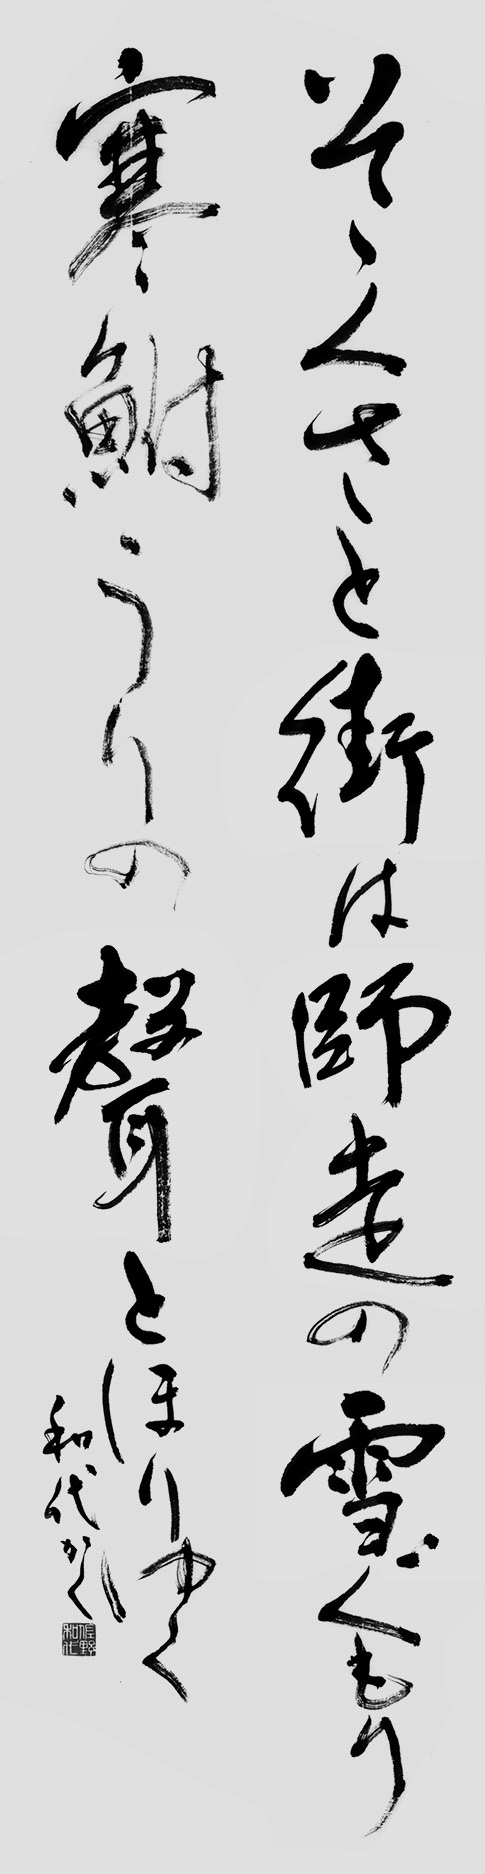 そゝくさと街は師走の雪ぐもり
寒鮒うりの聲とほりゆく
和代かく